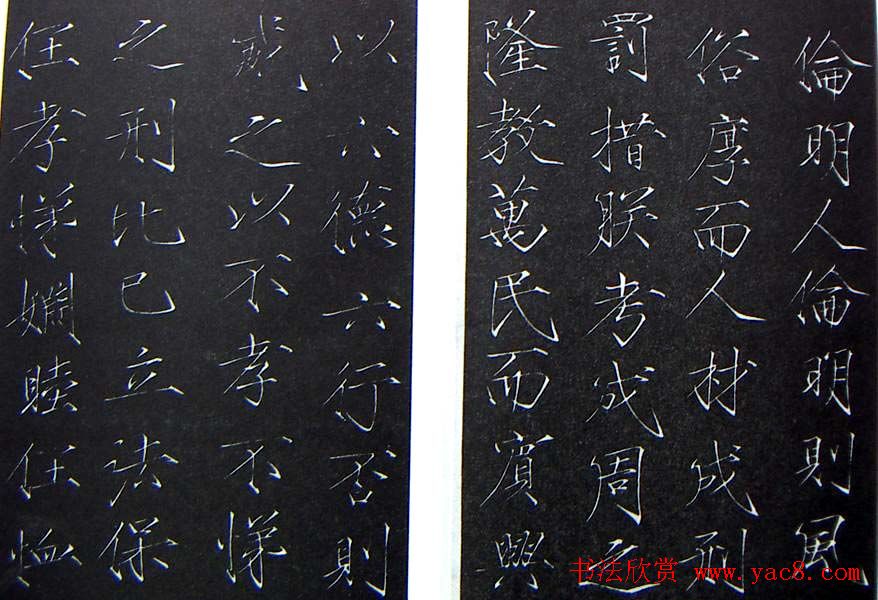 倫明人倫明則風
俗厚而人材成刑
罰措朕考成周之
隆教萬民而賓興
以六德六行否則
威之以不孝不悌
之刑比已立法保
任孝悌婣睦任恤
书法欣赏 www.yac8.com